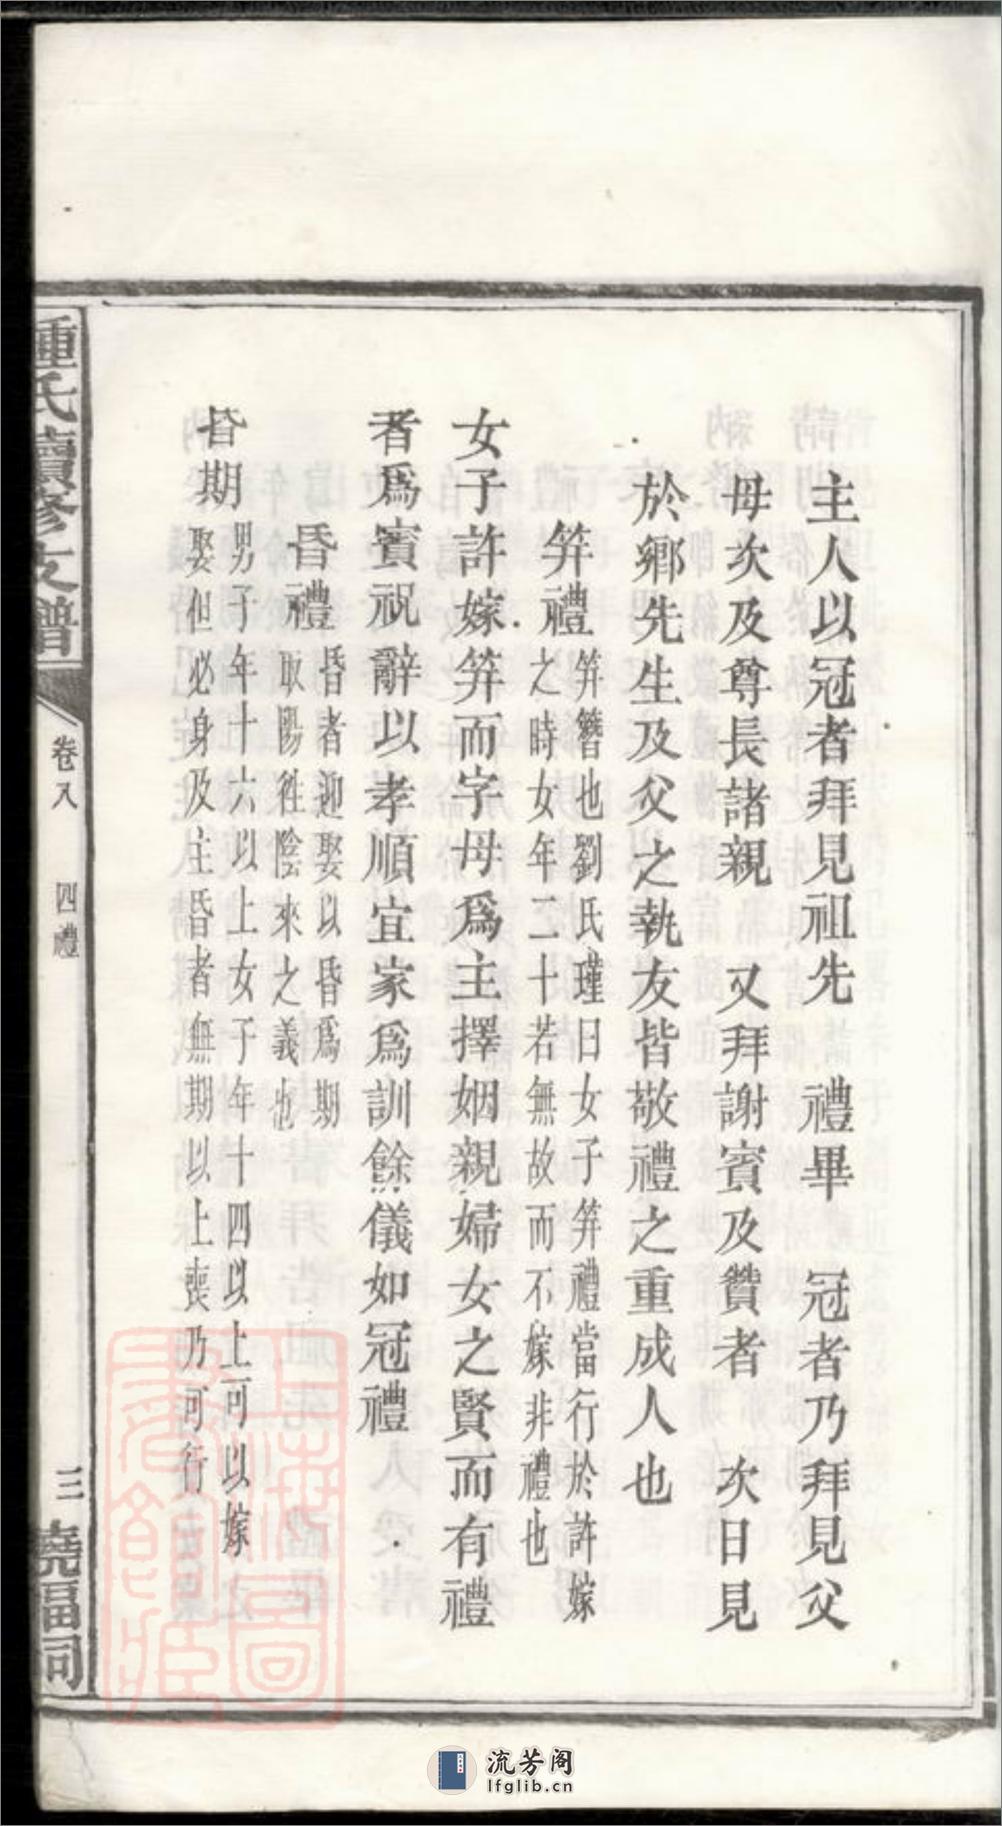 主人以冠者拜見祖先　禮畢　冠者乃拜見父
母次及尊長諸親　又拜謝賓及贊者　次日見
於鄉先生及父之執友皆敬禮之重成人也
笄禮
笄簪也劉氏瑾曰女子笄禮當行於許嫁
之時女年二十若無故而不嫁非禮也
女子許嫁笄而字母爲主擇姻親婦女之賢而有禮
者爲賓祝辭以孝順宜家爲訓餘儀如冠禮
昏禮
昏者迎娶以昏爲期
取陽徃陰來之義也
昏期
男子年十六以上女子年十四以上可以嫁
娶但必身及主昏者無期以上喪乃可行
氏續修支譜
卷八　四禮
三
堯福祠
上海圖書館藏
流芳阁
lfglib.cn